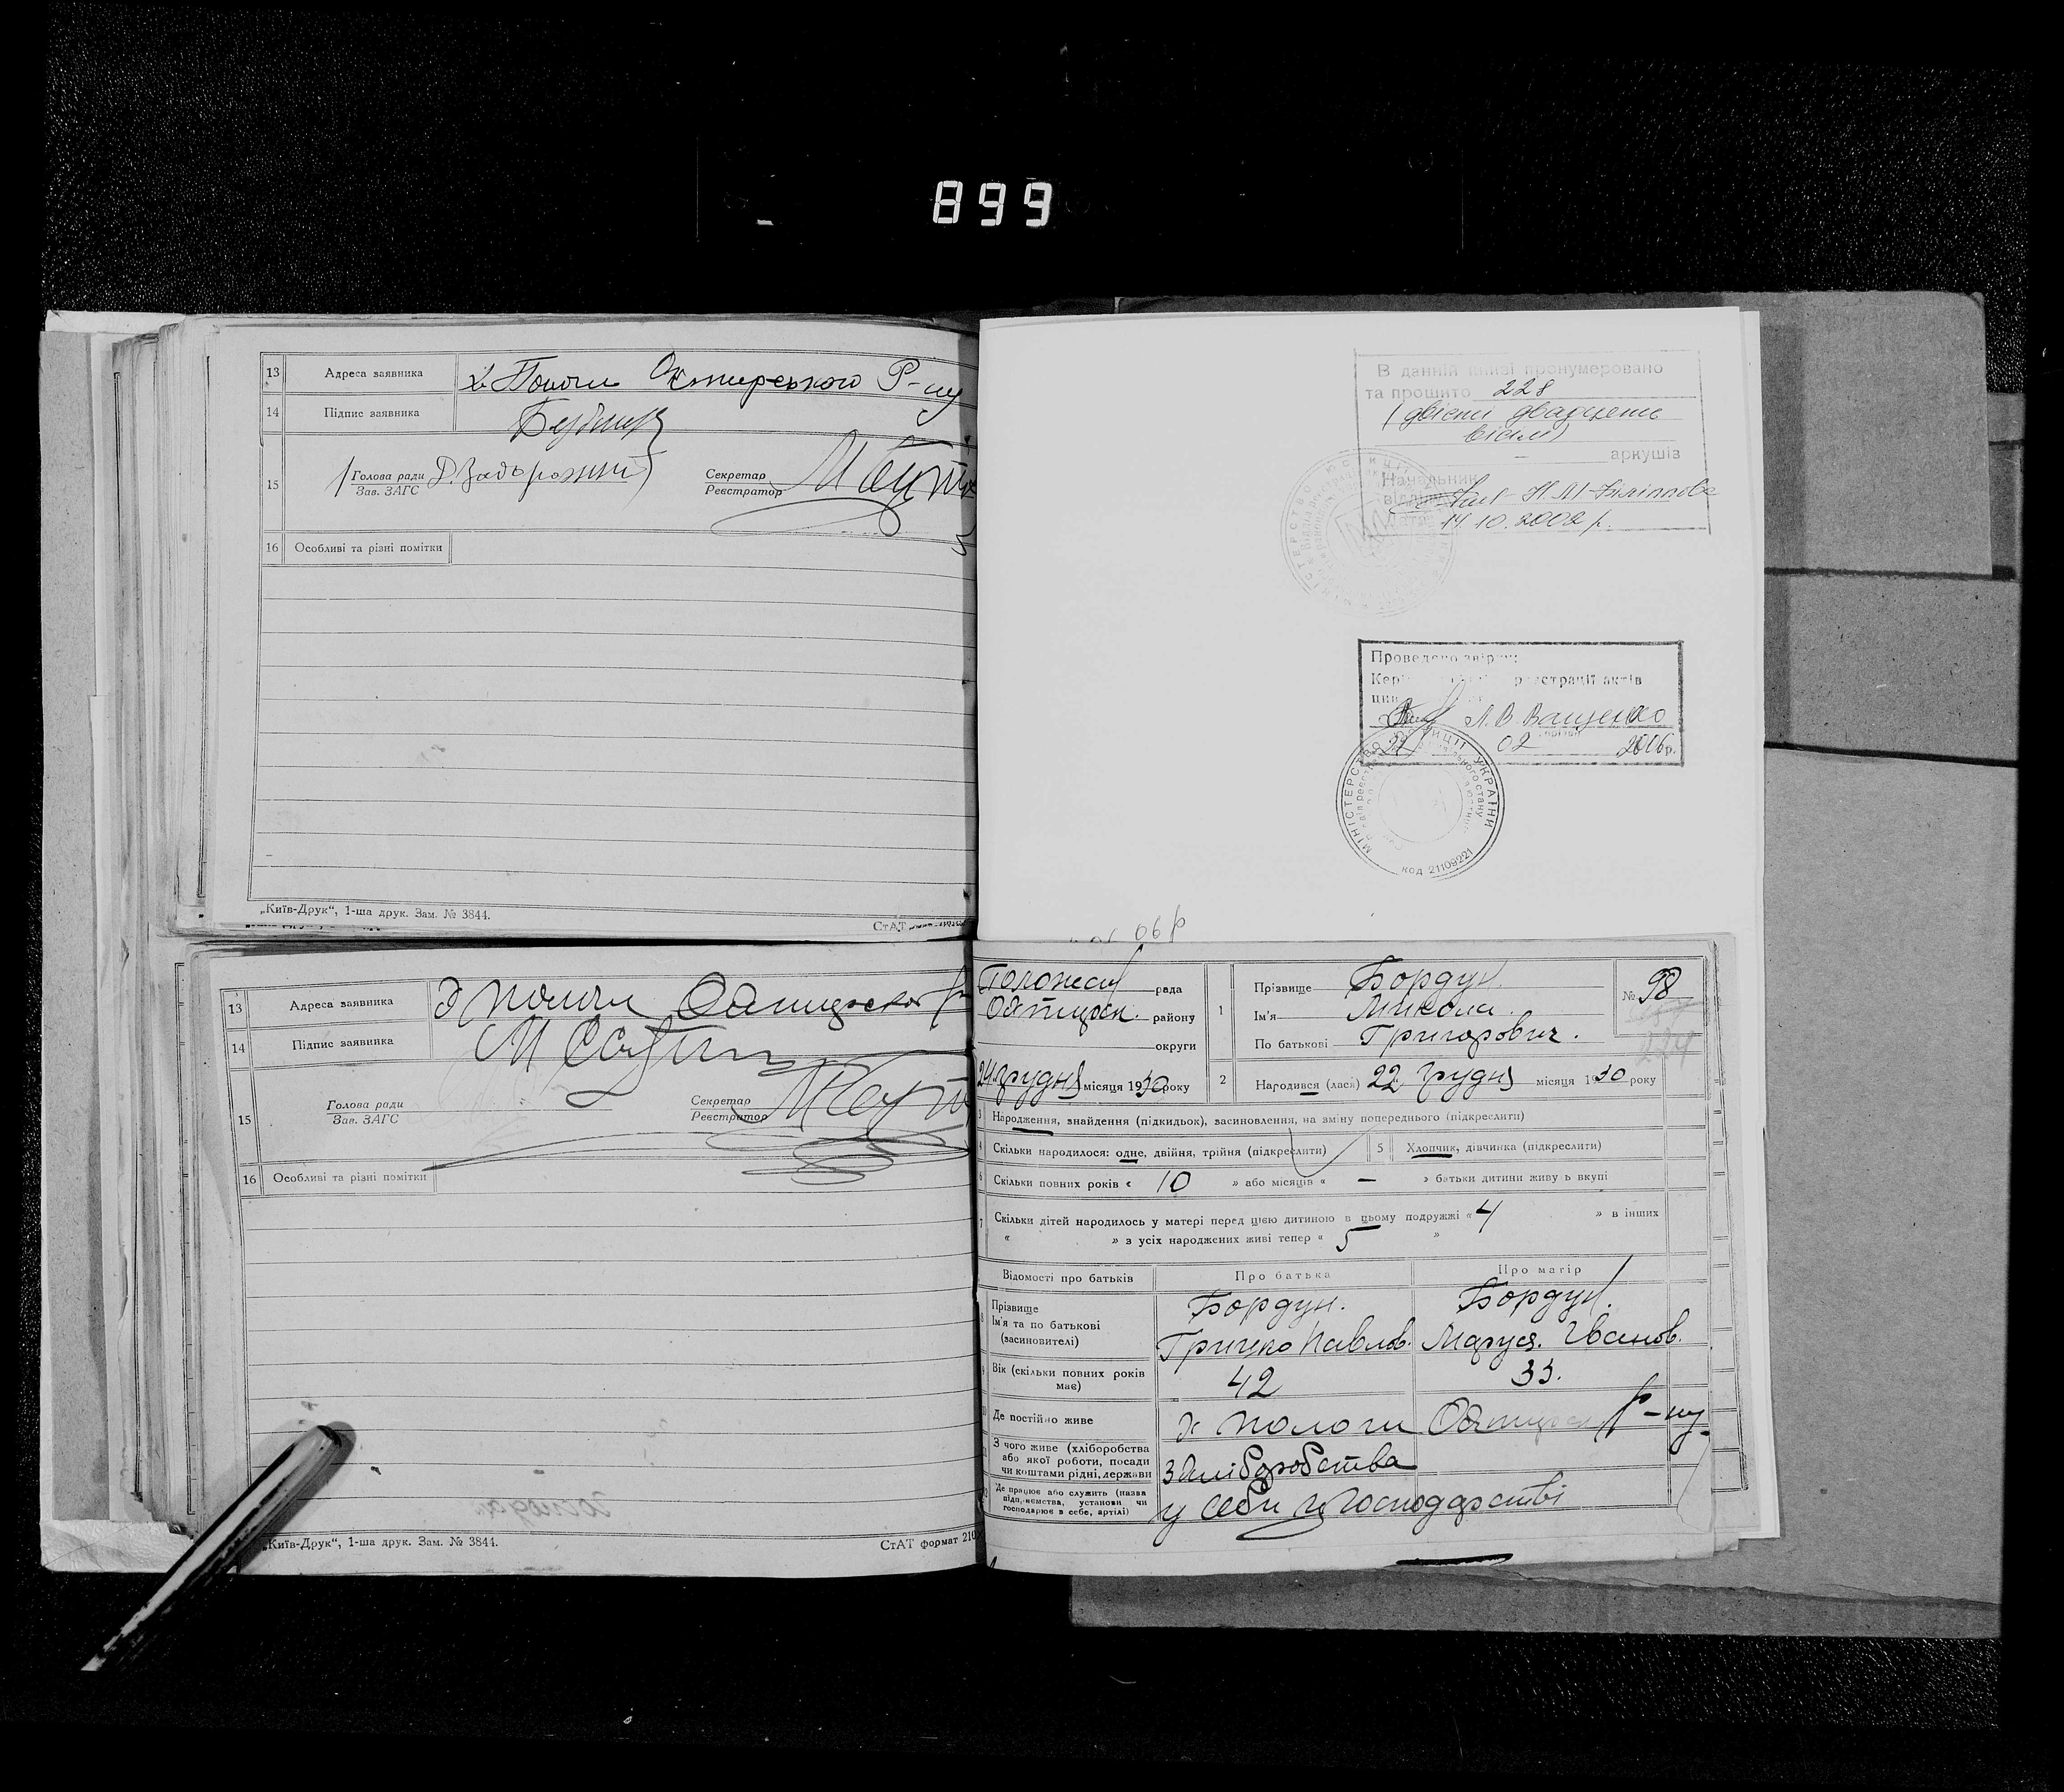 899
13 Адреса заявника х. Пологи Охтирського Р-ну
14 Підпис заявника
15 Голова ради Д. Задорожній Секретар
Зав. ЗАГС Реєстратор
16 Особливі та різні помітки
„Київ-Друк“, 1-ша друк. Зам. № 3844. СтАТ
В данній книзі пронумеровано
та прошито 228
(двісті двадцять
вісім)
аркушів
Начальник
відділу Н.М. Філіппова
14.10.2002 р.
Проведено звірку:
реєстрації актів
Л.В. Ващенко
02 2006 р.
МІНІСТЕРСТВО ЮСТИЦІЇ УКРАЇНИ
код 21109221
06 р
13 Адреса заявника х Пологи
14 Підпис заявника
15 Голова ради Секретар
Зав. ЗАГС Реєстратор
16 Особливі та різні помітки
„Київ-Друк“, 1-ша друк. Зам. № 3844. СтАТ формат 210
рада
району
округи
24 грудня місяця 1930 року
1 Прізвище Бордун
Ім'я Микола
По батькові Григорович.
№ 98
2 Народився (лася) 22 грудня місяця 1930 року
3 Народження, знайдення (підкидьок), засиновлення, на зміну попереднього (підкреслити)
4 Скільки народилося: одне, двійня, трійня (підкреслити) 5 Хлопчик, дівчинка (підкреслити)
6 Скільки повних років « 10 » або місяців « — » батьки дитини живуть вкупі
7 Скільки дітей народилось у матері перед цією дитиною в цьому подружжі « 4 » в інших
« » з усіх народжених живі тепер « 5 »
Відомості про батьків Про батька Про матір
8 Прізвище Бордун. Бордун.
Ім'я та по батькові
(засиновителі) Грицко Павлов. Маруся. Іванов.
9 Вік (скільки повних років має) 42 33.
Де постійно живе х Пологи Р-ну
З чого живе (хліборобства
або якої роботи, посади
чи коштами рідні, держави З хліборобства
Де працює або служить (назва
підприємства, установи чи
господарює в себе, артілі) у себе у господарстві